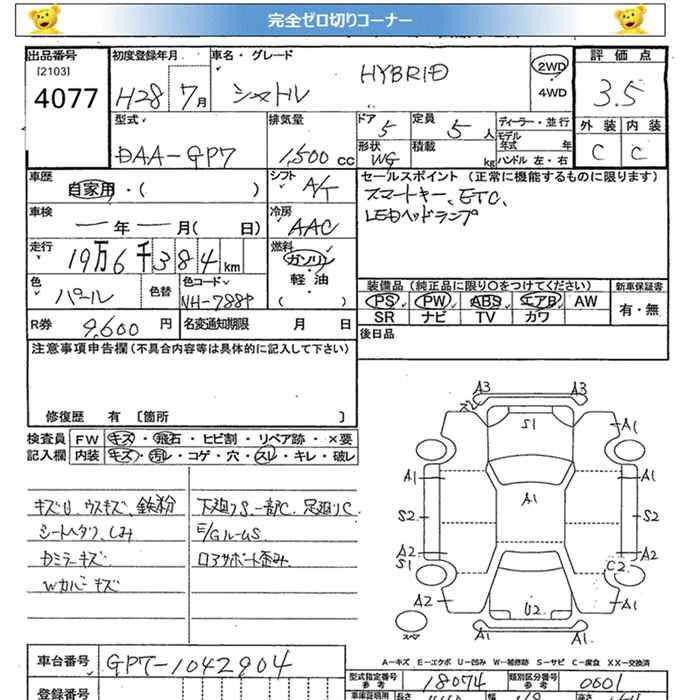 完全ゼロ切りコーナー
出品番号 初度登録年月 車名・グレード 評価点
[2103]
4077 H28 7月 シャトル HYBRID 2WD 4WD 3.5
外装 内装
C C
型式 排気量 ドア 定員 ディーラー・並行
DAA-GP7 1,500cc 5 5人 モデル年式 年
形状 積載 ハンドル 左・右
WG kg
車歴 シフト セールスポイント(正常に機能するものに限ります)
自家用・( ) A/T スマートキー、ETC、
LEDヘッドランプ
車検 冷房
ー年ー月( 日) AAC
走行 燃料
19万6千384km ガソリン・軽油
( )
色 色替 色コード
パール NH-788P
装備品(純正品に限り○をつけてください) 新車保証書
PS PW ABS エアB AW 有・無
SR ナビ TV カワ
R券 9,600円 名変通知期限 月 日
後日品
注意事項申告欄(不具合内容等は具体的に記入して下さい)
修復歴 有 [箇所 ]
検査員 FW キズ・飛石・ヒビ割・リペア跡・×要
記入欄 内装 キズ・汚レ・コゲ・穴・スレ・キレ・破レ
キズU、ウスキズ、鉄粉 下廻りS、一部C、足廻りC、
シートヘタリ、しみ E/GルームS
Dミラーキズ ロアサポート歪み、
Wカバーキズ
A3 A3
ズレ
S1
A1
A1 A1
A1
S2 S2
A2 A2
S1 C2
A2 U2 A1
スペア A1 A1
A-キズ E-エクボ U-凹み W-補修跡 S-サビ C-腐食 XX-交換済
車台番号 GP7-1042904
型式指定番号 参考 18074 類別区分番号 参考 0001
登録番号
車庫証明用 長さ 幅 高さ